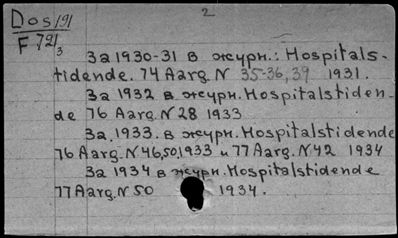 Dos/91
2
F 721/3
За 1930-31 в журн.: Hospitals-
tidende. 74 Aarg. N 35-36, 39 1931.
За 1932 в журн. Hospitalstiden-
de 76 Aarg. N 28 1933
За. 1933. в журн. Hospitalstidende
76 Aarg. N 46, 50, 1933 и 77 Aarg. N 42 1934
За 1934 в журн. Hospitalstidende
77 Aarg. N 50 1934.